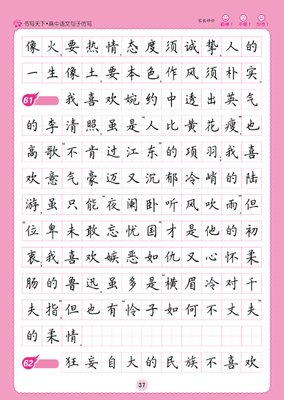 书写天下•高中语文句子仿写
像火要热情态度须诚挚,人的
一生像土要本色,作风须朴实。
61 我喜欢婉约中透出英气
的李清照,虽是“人比黄花瘦”,也
高歌“不肯过江东”的项羽。我喜
欢意气豪迈又沉郁冷峭的陆
游,虽只能“夜阑卧听风吹雨”,但
“位卑未敢忘忧国”才是他的初
衷。我喜欢嫉恶如仇又心怀柔
肠的鲁迅,虽多是“横眉冷对千
夫指”,但也有“怜子如何不丈夫”
的柔情。
62 狂妄自大的民族不喜欢
37